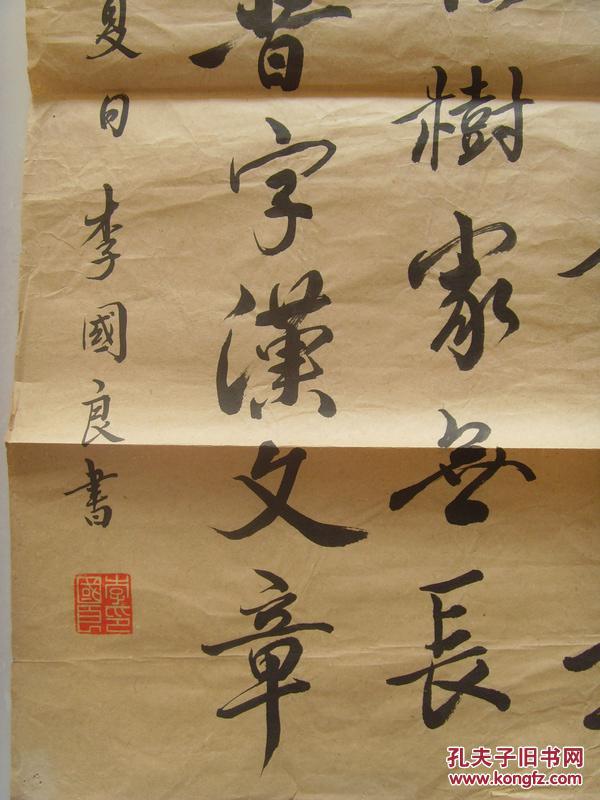 樹家無長
晋字漢文章
夏日 李國良書
李國良印
孔夫子旧书网
www.kongfz.com